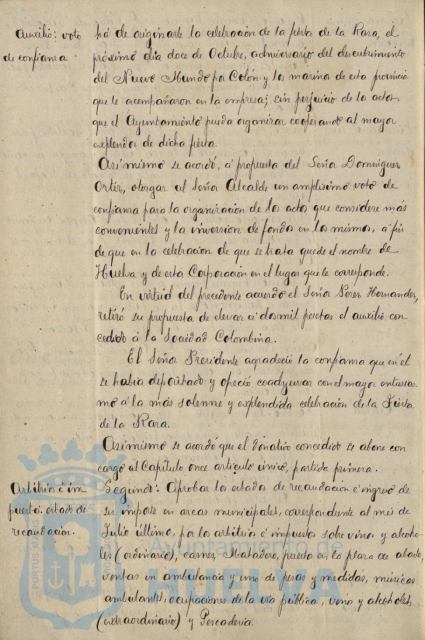 Auxilio: voto
de confianza.
há de originarle la celebración de la fiesta de la Raza, el
próximo día doce de Octubre, adniversario del descubrimiento
del Nuevo Mundo por Colón y los marinos de esta provincia
que le acompañaron en la empresa; sin perjuicio de los actos
que el Ayuntamiento pueda organizar cooperando al mayor
explendor de dicha fiesta.
Asímismo se acordó, á propuesta del Señor Dominguez
Ortiz, otorgar al Señor Alcalde un amplisimo voto de
confianza para la organización de los actos que considere más
convenientes y la inversión de fondos en los mismos, á fin
de que en la celebración de que se trata quede el nombre de
Huelva y de esta Corporación en el lugar que le corresponde.
En virtud del precedente acuerdo el Señor Perez Hernandez,
retiró su propuesta de elevar á dos mil pesetas el auxilio con
cedido á la Sociedad Colombina.
El Señor Presidente agradeció la confianza que en él
se había depositado y ofreció coadyuvar con el mayor entusias
mo á la más solenne y explendida celebración de la Fiesta
de la Raza.
Asímismo se acordó que el donativo concedido se abone con
cargo al Capítulo once artículo único, partida primera.
Arbitrios é im
puestos: estado de
recaudación.
Segundo: Aprobar los estados de recaudación é ingreso de
su importe en arcas municipales, correspondiente al mes de
Julio último, por los arbitrios é impuestos sobre vinos y alcoho
les (ordinario), carnes, Matadero, puestos en la plaza de abasto,
ventas en ambulancia y uso de pesas y medidas, músicas
ambulantes, ocupaciones de la vía pública, vinos y alcoholes,
(extraordinario) y Pescadería.